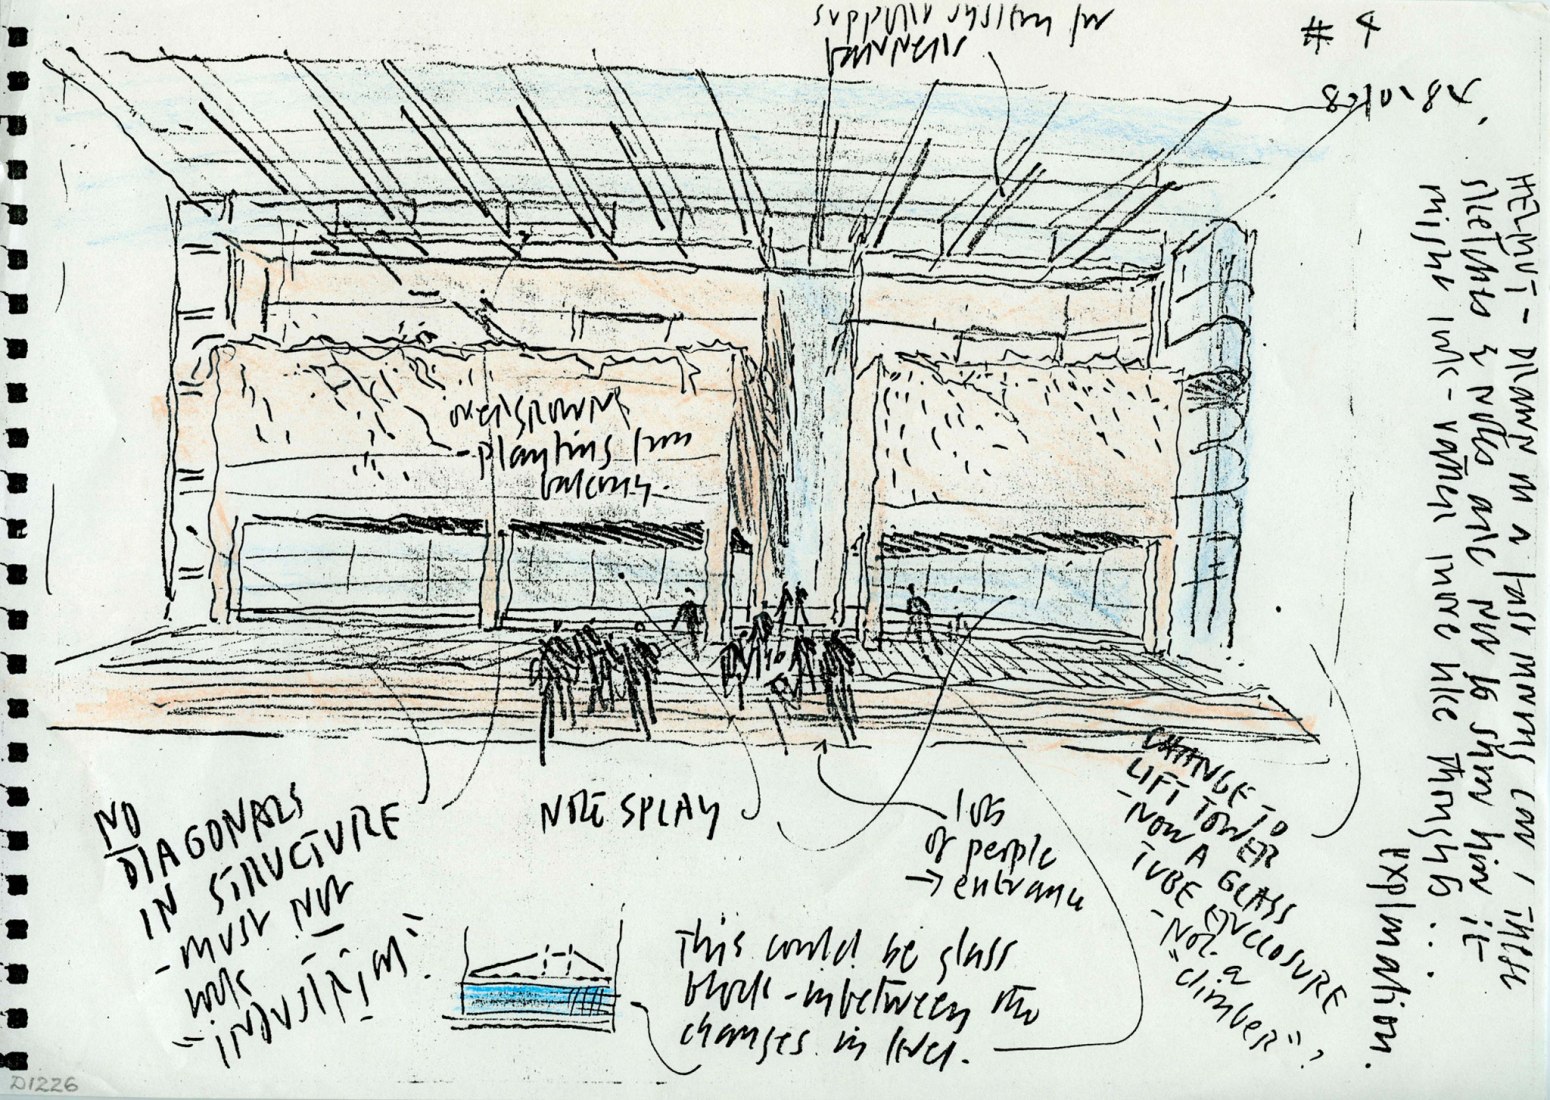 support system for
banners
# 4
HELMUT - DRAWN IN A FAST MOVING CAR, THESE
sketches & notes are not to show how it
might look - rather more like
Explanation.
overgrowing
- planting from
balcony.
NO
DIAGONALS
IN STRUCTURE
- must NOT
look
"INDUSTRIAL".
NOTE SPLAY
lots
of people
→ entrance
CHANGE TO
LIFT TOWER
- NOW A GLASS
TUBE ENCLOSURE
- NOT a
"climber",
This could be glass
block - inbetween the
changes in level.
D1226